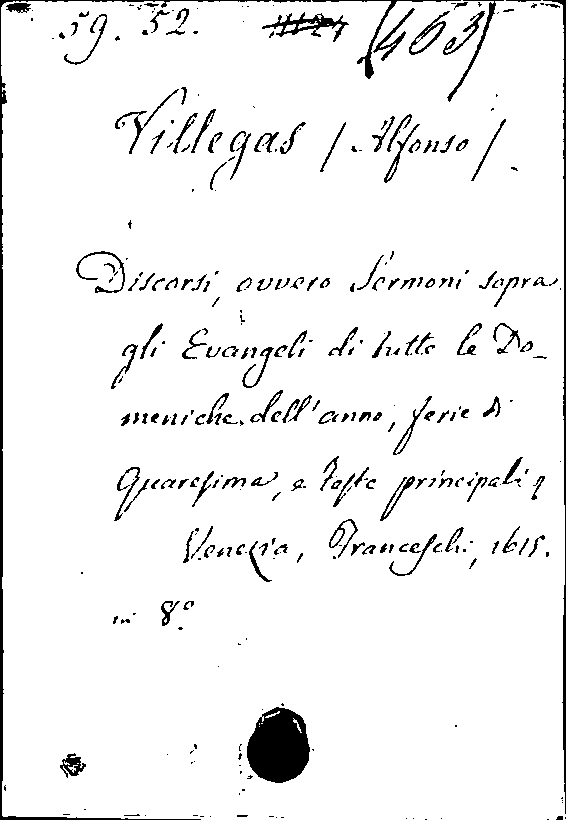 59. 52. (463)
Villegas / Alfonso /.
Discorsi, ovvero Sermoni sopra
gli Evangeli di tutte le Do-
meniche dell'anno, ferie di
Quaresima, e feste principali
Venezia, Franceschi, 1615.
in 8°